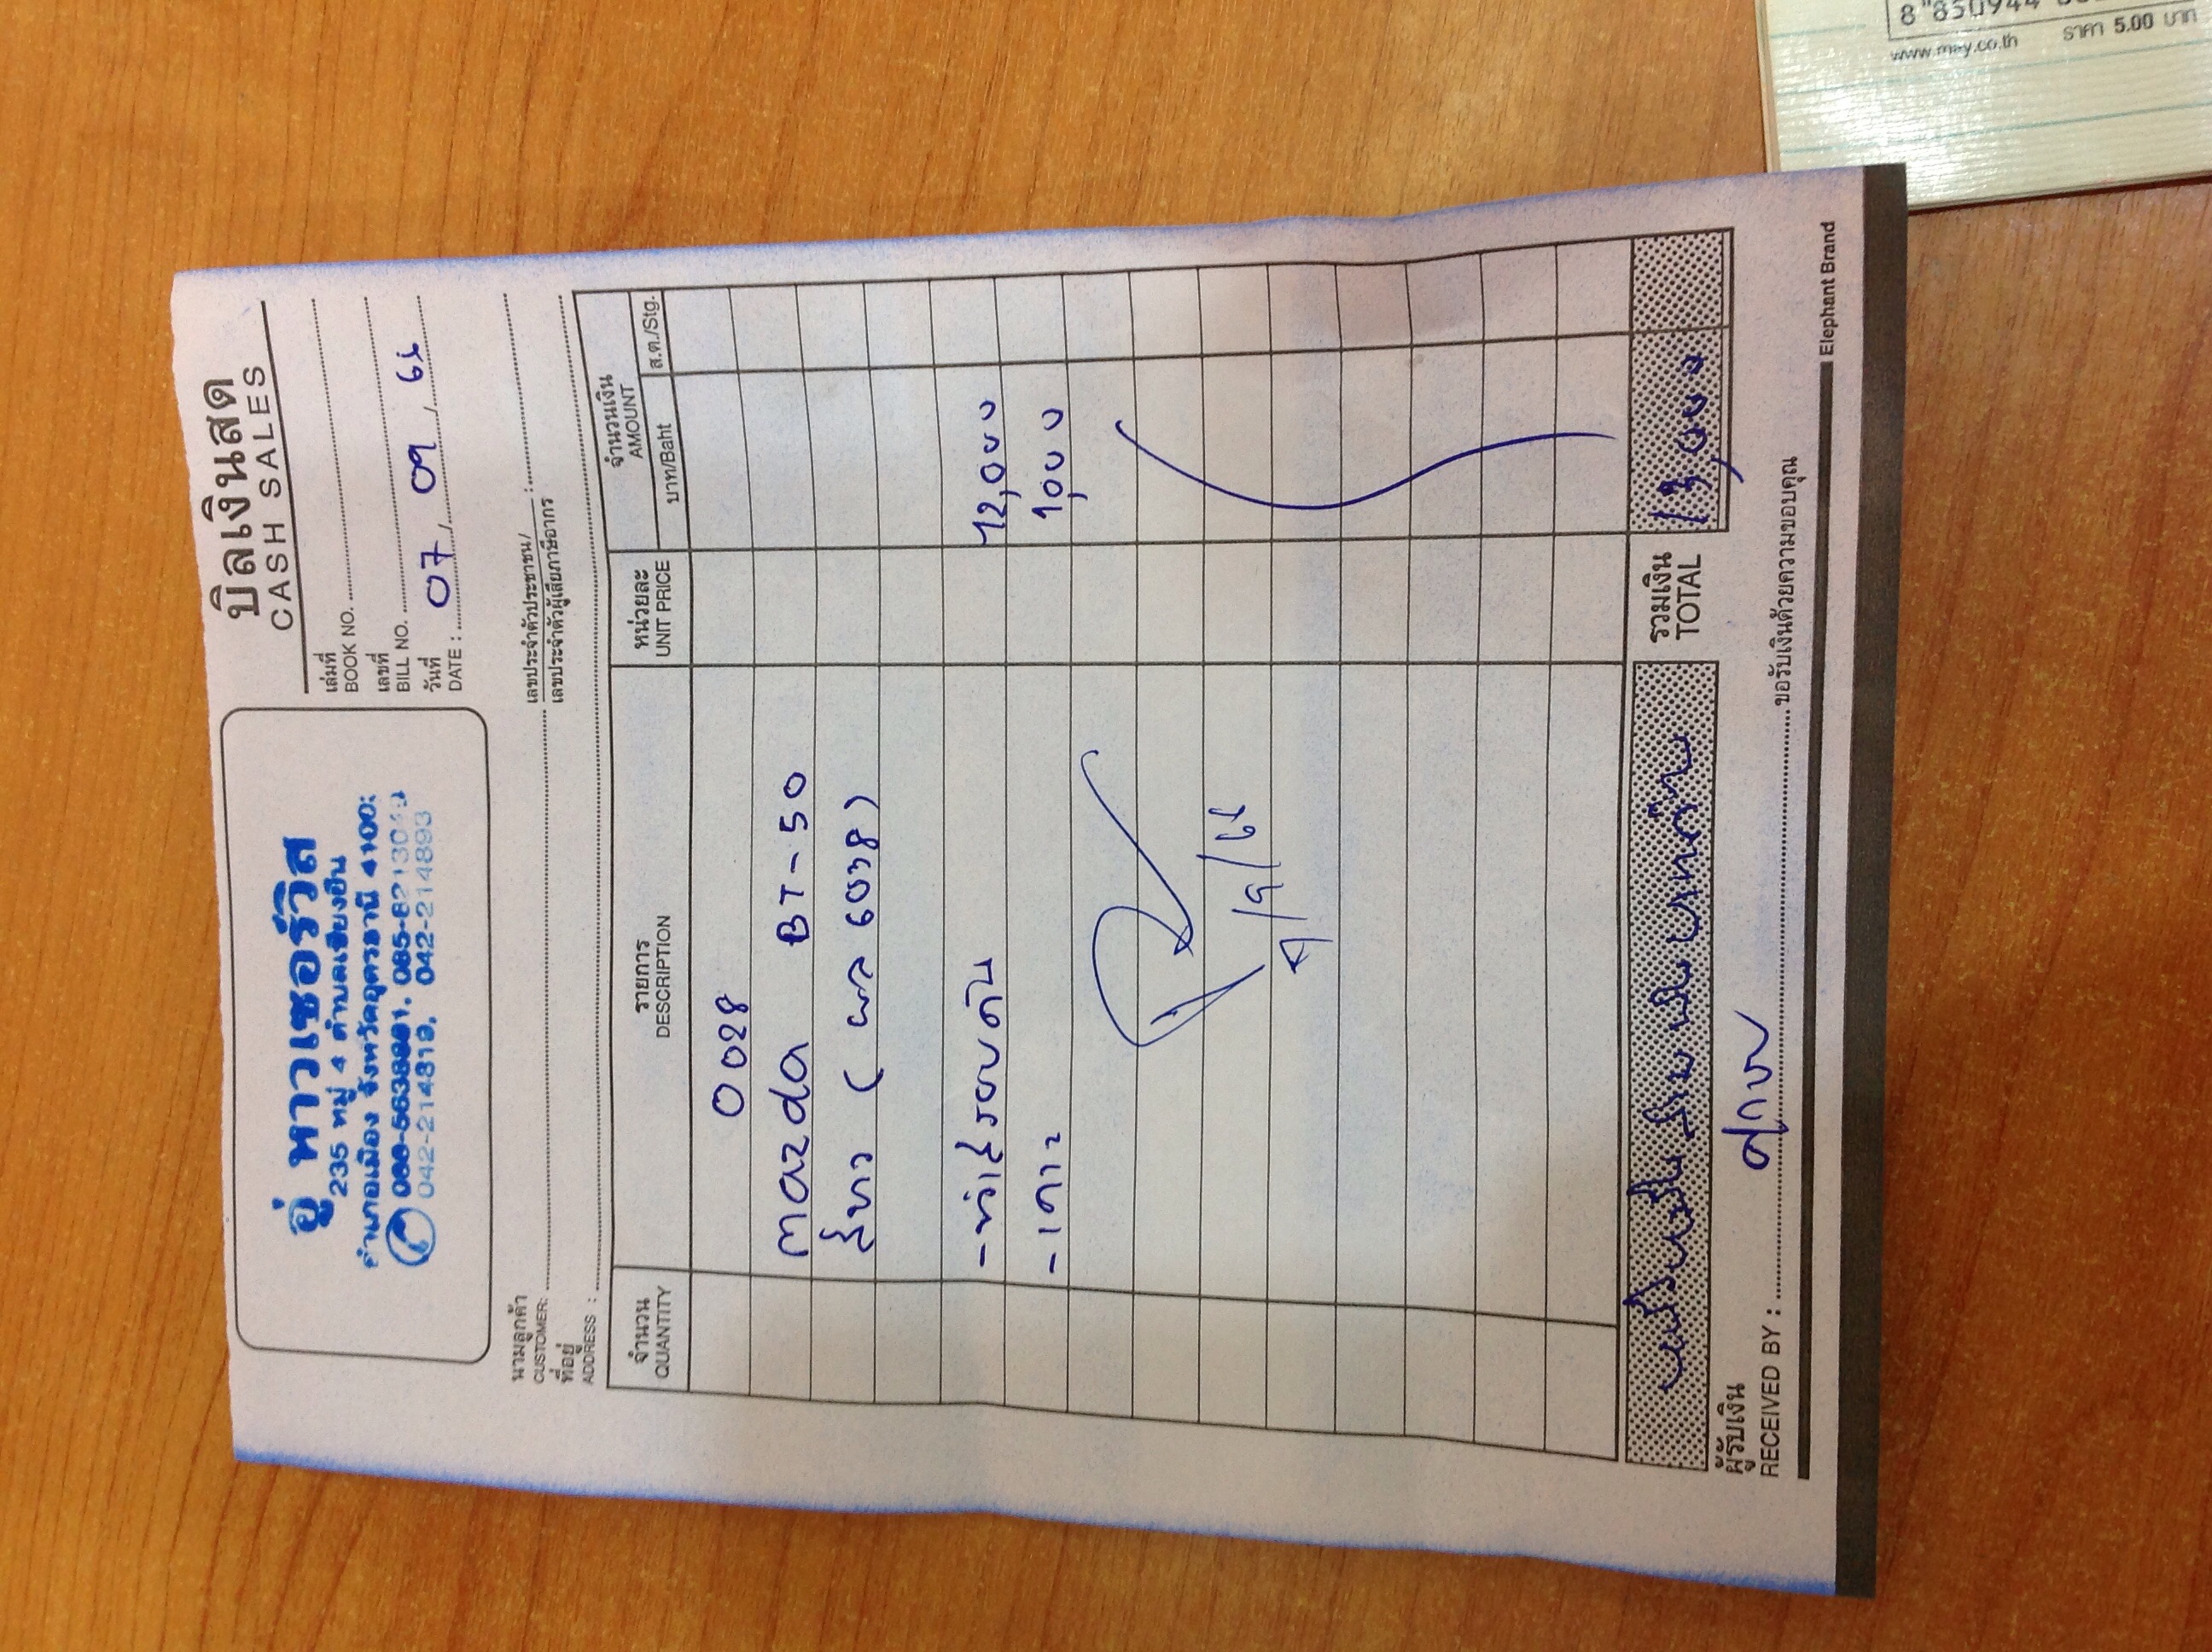 อู่ หาวเซอร์วิส
235 หมู่ 4 ตำบลเชียงยืน
อำเภอเมือง จังหวัดอุดรธานี
042-214819, 042-214893
บิลเงินสด
CASH SALES
เล่มที่
BOOK NO.
เลขที่
BILL NO.
วันที่
DATE : 07 / 09 / 66
นามลูกค้า
CUSTOMER:
เลขประจำตัวประชาชน/
เลขประจำตัวผู้เสียภาษีอากร :
ที่อยู่
ADDRESS :
จำนวน รายการ หน่วยละ จำนวนเงิน
QUANTITY DESCRIPTION UNIT PRICE AMOUNT
บาท/Baht ส.ต./Stg.
0028
mazda BT-50
สีขาว ( ผล 6038)
- ทำสีรอบคัน 12,000
- เคาะ 1,000
7/9/66
รวมเงิน
TOTAL 13,000
หนึ่งหมื่นสามพันบาทถ้วน
ผู้รับเงิน
RECEIVED BY : ขอรับเงินด้วยความขอบคุณ
Elephant Brand
8 850944
www.may.co.th ราคา 5.00 บาท